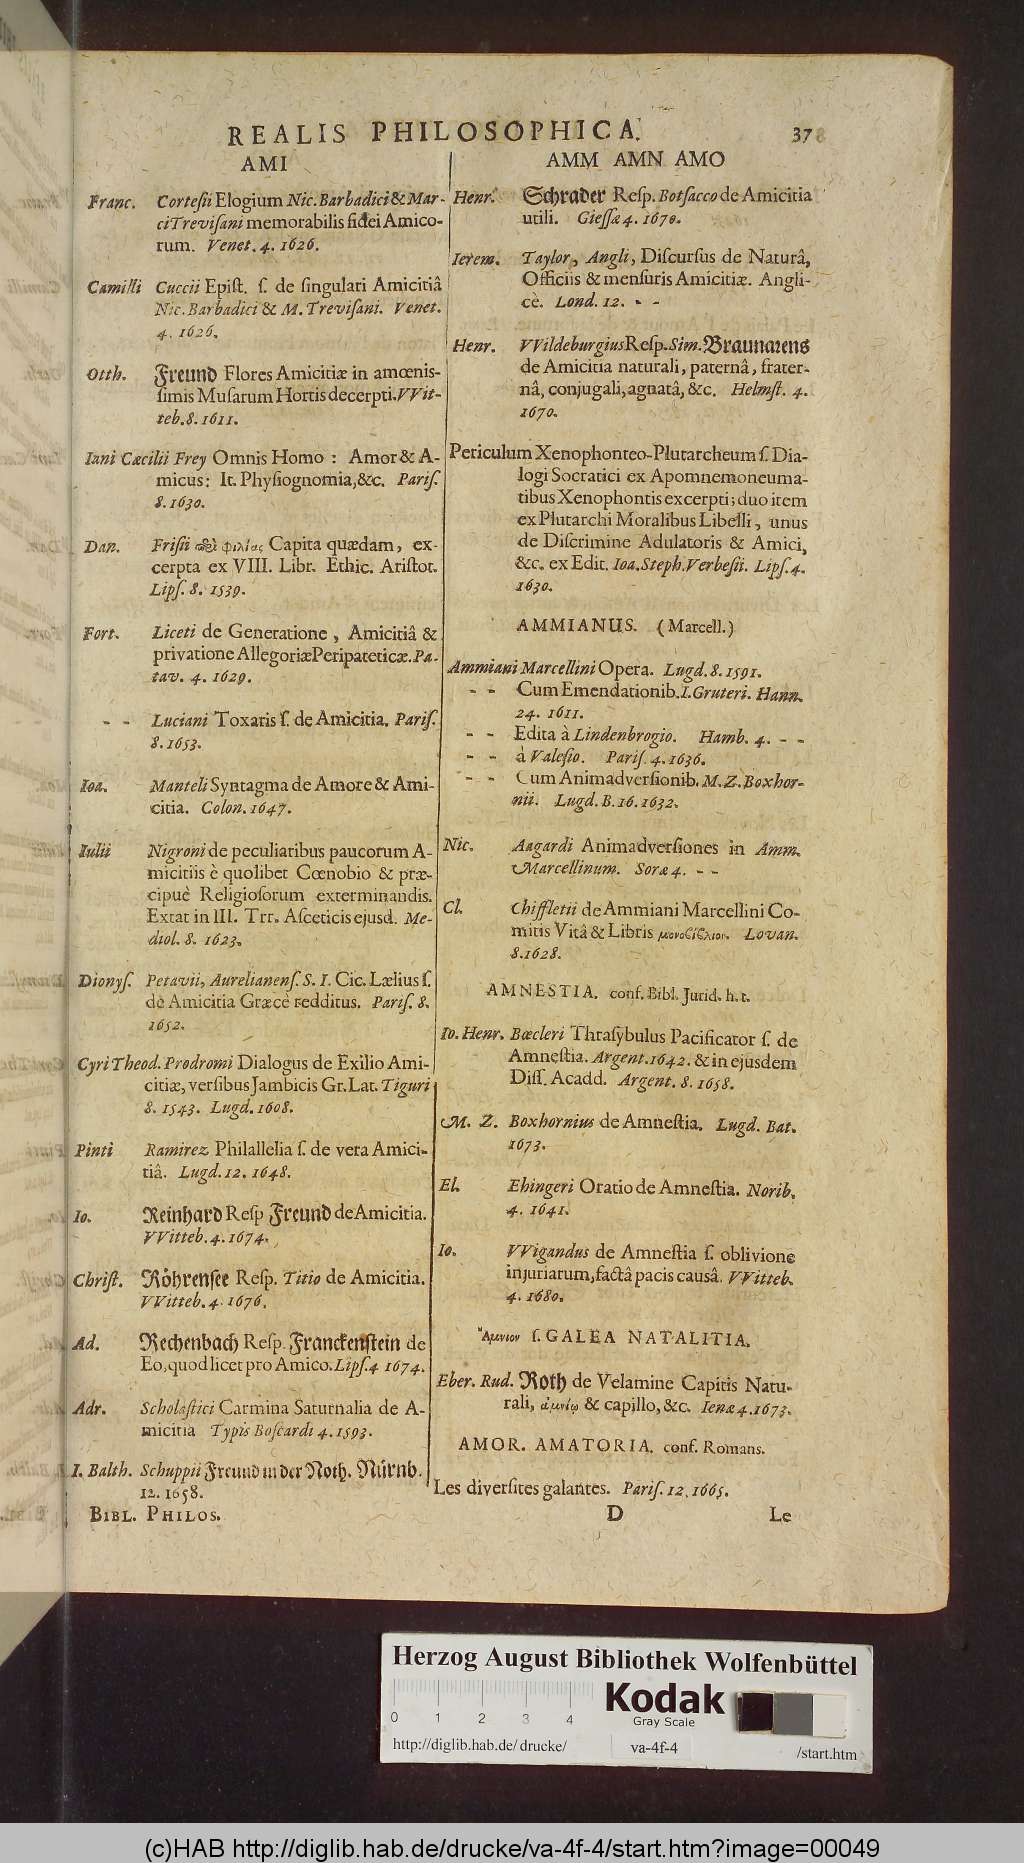 REALIS PHILOSOPHICA. 37
AMI
Franc. Cortesii Elogium Nic. Barbadici & Mar-
ci Trevisani memorabilis fidei Amico-
rum. Venet. 4. 1626.
Camilli Cuccii Epist. ſ. de ſingulari Amicitiâ
Nic. Barbadici & M. Treviſani. Venet.
4. 1626.
Otth. Freund Flores Amicitiæ in amœnis-
ſimis Muſarum Hortis decerpti. VVit-
teb. 8. 1611.
Iani Cæcilii Frey Omnis Homo : Amor & A-
micus: It. Phyſiognomia, &c. Pariſ.
8. 1630.
Dan. Friſii φιλίας Capita quædam, ex-
cerpta ex VIII. Libr. Ethic. Ariſtot.
Lipſ. 8. 1539.
Fort. Liceti de Generatione, Amicitiâ &
privatione Allegoriæ Peripateticæ. Pa-
tav. 4. 1629.
- - Luciani Toxaris ſ. de Amicitia. Pariſ.
8. 1653.
Ioa. Manteli Syntagma de Amore & Ami-
citia. Colon. 1647.
Iulii Nigroni de peculiaribus paucorum A-
micitiis è quolibet Cœnobio & præ-
cipuè Religioſorum exterminandis.
Extat in III. Trr. Aſceticis ejusd. Me-
diol. 8. 1623.
Dionyſ. Petavii, Aurelianenſ. S. I. Cic. Lælius ſ.
de Amicitia Græcè redditus. Pariſ. 8.
1652.
Cyri Theod. Prodromi Dialogus de Exilio Ami-
citiæ, verſibus Jambicis Gr. Lat. Tiguri
8. 1543. Lugd. 1608.
Pinti Ramirez Philallelia ſ. de vera Amici-
tiâ. Lugd. 12. 1648.
Io. Reinhard Reſp Freund de Amicitia.
VVitteb. 4. 1674.
Chriſt. Röhrenſee Reſp. Titio de Amicitia.
VVitteb. 4. 1676.
Ad. Rechenbach Reſp. Franckenſtein de
Eo, quod licet pro Amico. Lipſ. 4 1674.
Adr. Scholaſtici Carmina Saturnalia de A-
micitia Typis Boſcardi 4. 1593.
I. Balth. Schuppii Freund in der Noth. Nürnb.
12. 1658.
BIBL. PHILOS.
AMM AMN AMO
Henr. Schrader Reſp. Botſacco de Amicitia
utili. Gieſſæ 4. 1670.
Ierem. Taylor, Angli, Diſcurſus de Naturâ,
Officiis & menſuris Amicitiæ. Angli-
cè. Lond. 12. - -
Henr. VVildeburgius Reſp. Sim. Braunarens
de Amicitia naturali, paternâ, frater-
nâ, conjugali, agnatâ, &c. Helmſt. 4.
1670.
Periculum Xenophonteo-Plutarcheum ſ. Dia-
logi Socratici ex Apomnemoneuma-
tibus Xenophontis excerpti; duo item
ex Plutarchi Moralibus Libelli, unus
de Diſcrimine Adulatoris & Amici,
&c. ex Edit. Ioa. Steph. Verbeſii. Lipſ. 4.
1630.
AMMIANUS. (Marcell.)
Ammiani Marcellini Opera. Lugd. 8. 1591.
- - Cum Emendationib. I. Gruteri. Hann.
24. 1611.
- - Edita à Lindenbrogio. Hamb. 4. - -
- - à Valeſio. Pariſ. 4. 1636.
- - Cum Animadverſionib. M. Z. Boxhor-
nii. Lugd. B. 16. 1632.
Nic. Aagardi Animadverſiones in Amm.
Marcellinum. Soræ 4. - -
Cl. Chiffletii de Ammiani Marcellini Co-
mitis Vitâ & Libris μονοβίβλιον. Lovan.
8. 1628.
AMNESTIA. conf. Bibl. Jurid. h. t.
Io. Henr. Bœcleri Thraſybulus Pacificator ſ. de
Amneſtia. Argent. 1642. & in ejusdem
Diſſ. Acadd. Argent. 8. 1658.
M. Z. Boxhornius de Amneſtia. Lugd. Bat.
1673.
El. Ehingeri Oratio de Amneſtia. Norib.
4. 1641.
Io. VVigandus de Amneſtia ſ. oblivione
injuriarum, factâ pacis causâ. VVitteb.
4. 1680.
Ἄμνιον ſ. GALEA NATALITIA.
Eber. Rud. Roth de Velamine Capitis Natu-
rali, ἀμνίῳ & capillo, &c. Ienæ 4. 1673.
AMOR. AMATORIA. conf. Romans.
Les diverſites galantes. Pariſ. 12. 1665.
D Le
Herzog August Bibliothek Wolfenbüttel
0 1 2 3 4
Kodak
Gray Scale
http://diglib.hab.de/drucke/ va-4f-4 /start.htm
(c)HAB http://diglib.hab.de/drucke/va-4f-4/start.htm?image=00049